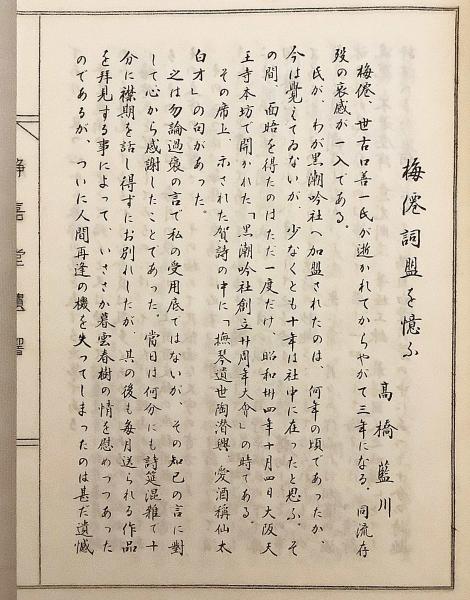 梅僊詞盟を憶ふ
高橋藍川
梅僊、世古口善一氏が逝かれてからやがて三年になる。同流存
歿の哀感が一入である。
氏が、わが黒潮吟社へ加盟されたのは、何年の頃であったか、
今は覺えてゐないが、少なくとも十年は社中に在ったと思ふ。そ
の間、面晤を得たのはただ一度だけ、昭和卅四年十月四日大阪天
王寺本坊で開かれた「黒潮吟社創立廿周年大會」の時である
その席上、示された賀詩の中に「撫琴遺世陶潜興、愛酒稱仙太
白才」の句があった。
之は勿論過褒の言で私の受用底ではないが、その知己の言に對
して心から感謝したことであった。當日は何分にも詩筵混雜で十
分に襟期を話し得ずにお別れしたが、其の後も毎月送られる作品
を拜見する事によって、いささか暮雲春樹の情を慰めつつあった
のであるが、ついに人間再逢の機を失ってしまったのは甚だ遺憾
嘉堂遺響